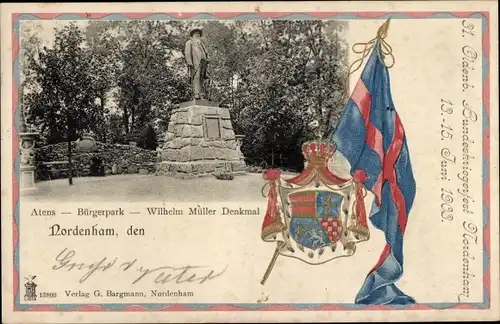 Atens — Bürgerpark — Wilhelm Müller Denkmal
Nordenham, den
Gruß v. Vater
13808 Verlag G. Bargmann, Nordenham
31. Oldenb. Bundeskriegerfest Nordenham
13.-15. Juni 1903.